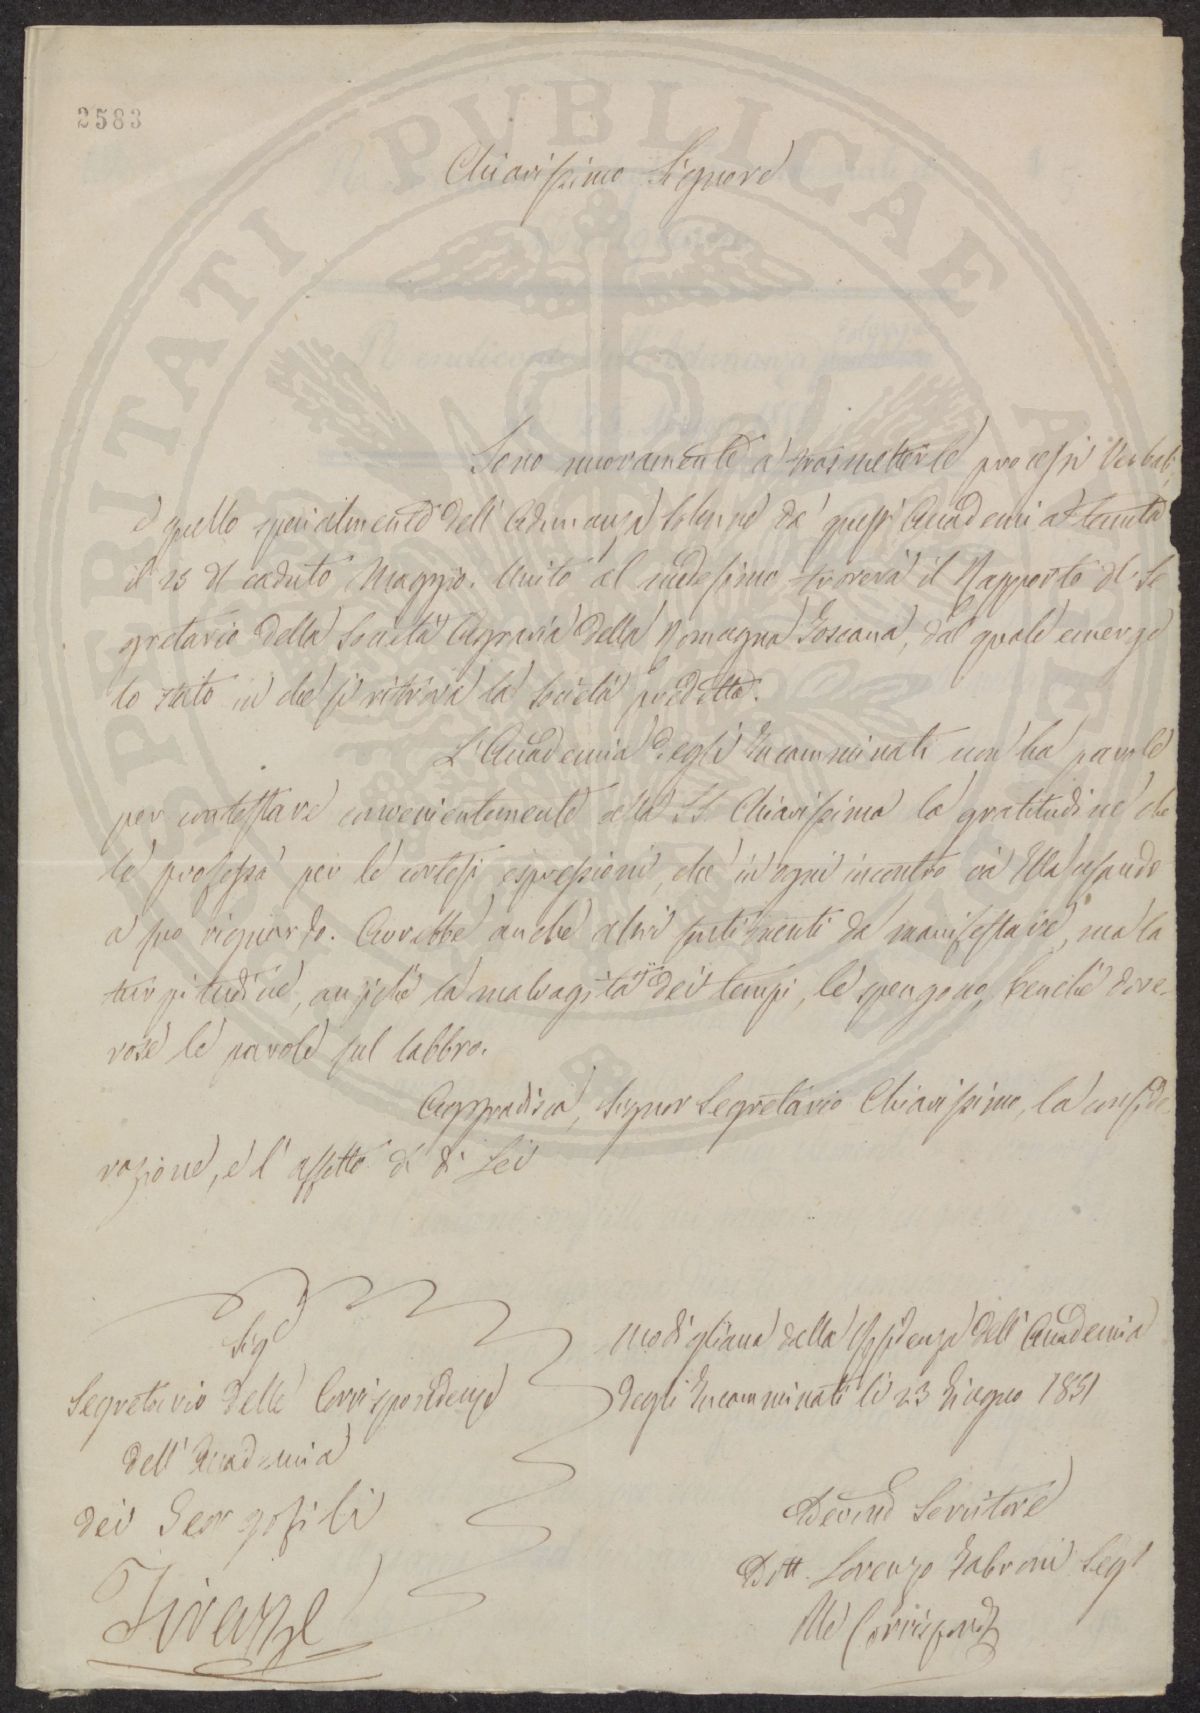 2583
PROSPERITATI PVBLICAE AVGENDAE
Chiarissimo Signore
Sono nuovamente a trasmetterle processi Verbali,
e quello specialmente dell'Adunanza solenne da questi Accademici tenuta
il 25 del caduto Maggio. Unito al medesimo troverà il Rapporto del Se
gretario della Società Agraria della Romagna Toscana, dal quale emerge
lo stato in che si ritrova la Società predetta.
L'Accademia degli Incamminati non ha parole
per contestare convenientemente alla S. S. Chiarissima la gratitudine che
le professa per le cortesi espressioni, che in ogni incontro và Ella usando
a suo riguardo. Avrebbe anche altri sentimenti da manifestare, ma la
turpitudine, anziché la malvagità dei tempi, le spengono, benché dove-
rose le parole sul labbro.
Aggradisca, Signor Segretario Chiarissimo, la conside
razione, e l'affetto di Lei
Sig
Segretario delle Corrispondenze
dell'Accademia
dei Georgofili
Firenze
Modigliana dalla Residenza dell'Accademia
degli Incamminati li 23 Giugno 1851
Devmo Servitore
Dott. Lorenzo Fabroni Segr
delle Corrispond